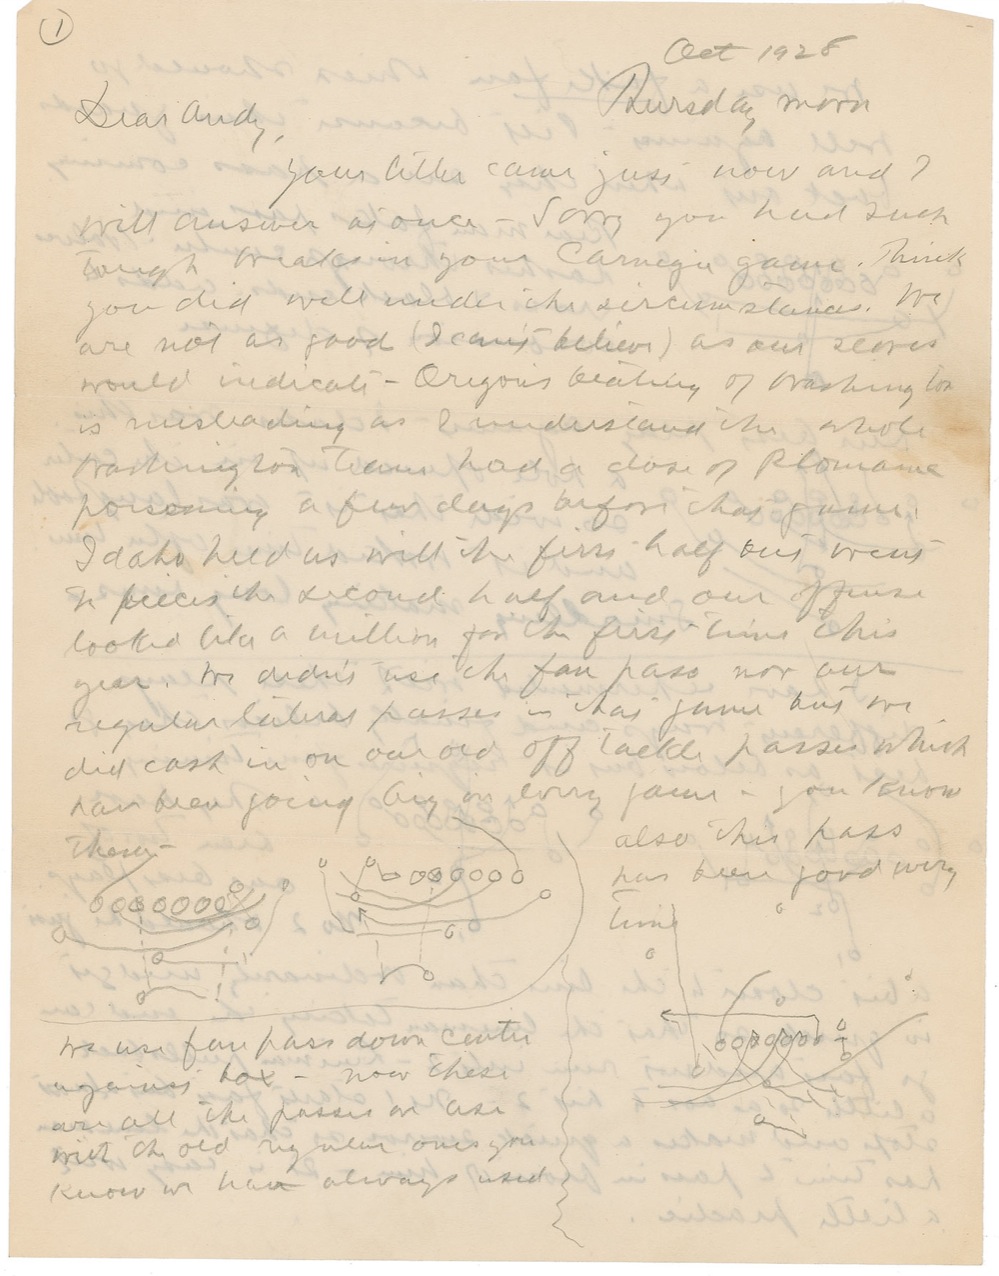 1
Oct 1928
Thursday morn
Dear Andy,
Your letter came just now and I
will answer at once - Sorry you had such
tough breaks in your Carnegie game. Think
you did well under the sircumstances. We
are not as good (I can't believe) as our scores
would indicate - Oregon's beating of Washington
is misleading as I understand the whole
Washington team had a dose of Ptomaine
poisoning a few days before that game.
Idaho held us well the first half but went
to pieces the second half and our offense
looked like a million for the first time this
year. We didn't use the fan pass nor our
regular lateral passes in that game but we
did cash in on our old off tackle passes which
have been going big in every game - you know
them -
also this pass
has been good every
time
We use fan pass down center
against box - now these
are all the passes we use
with the old regular ones you
know we have always used